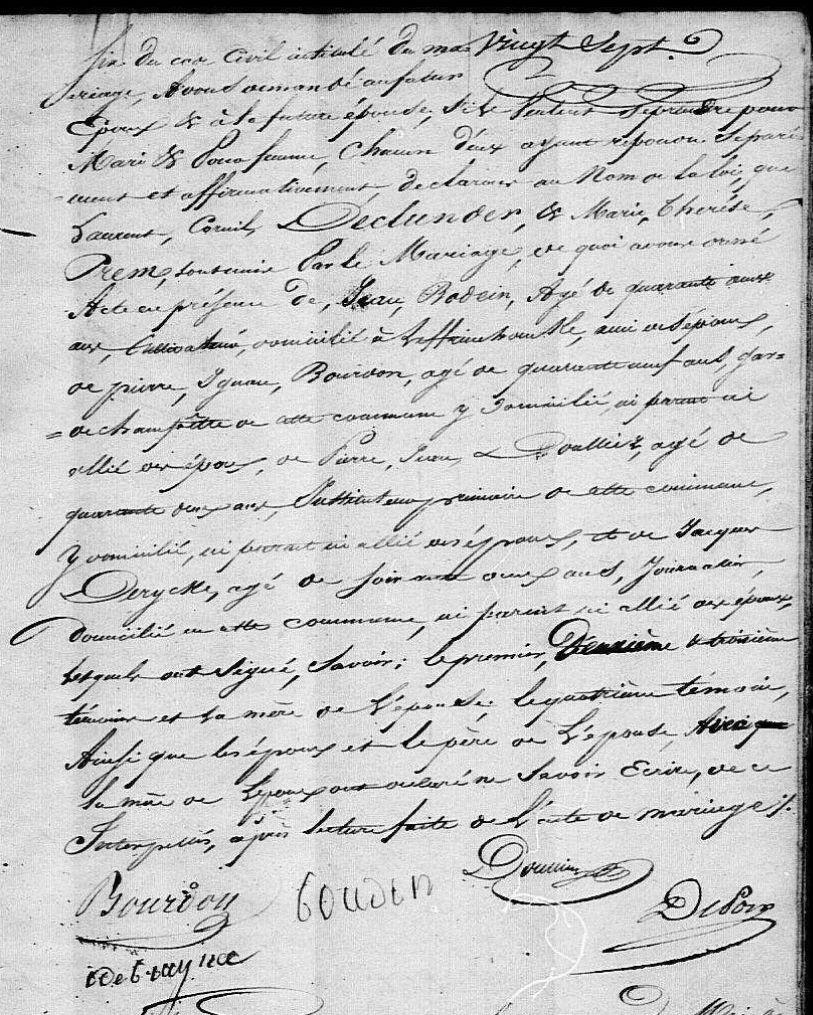 Vingt Sept.
six du code Civil intitulé du ma=
riage, Avons demandé au futur
Epoux & à la future épouse, s'ils veulent se prendre pour
Mari & Pour femme, Chacun d'eux ayant repondu Separé=
=ment et affirmativement, declarons au Nom de la loi, que
Laurent, Cornil, Declunder, & Marie, Thérèse,
Prem, sont unis Par le Mariage, de quoi avons dressé
Acte en présence de, Jean, Bodein, Agé de quarante deux
ans, Cultivateur, domicilié à ami des époux,
de pierre, Ignace, Bourdon, agé de quarante neuf ans, gar=
=de champêtre de cette commune y domicilié, ni parent ni
allié des époux, de Pierre, Jean, Doulliez, agé de
quarante deux ans, Instituteur primaire de cette commune,
y domicilié, ni parent ni allié des époux, et de Jacques
Derycke, agé de soixante deux ans, Journalier,
Domicilié en cette commune, ni parent ni allié des époux,
lesquels ont Signé, Savoir; le premier, Deuxième & troisième
témoins et la mère de L'épouse; le quatrième témoin,
Ainsi que les époux et le père de L'épouse, Avec
la mère de L'époux ont déclaré ne Savoir Ecrire, de ce
Interpellés, après lecture faite de L'acte de mariage ./.
Bourdon